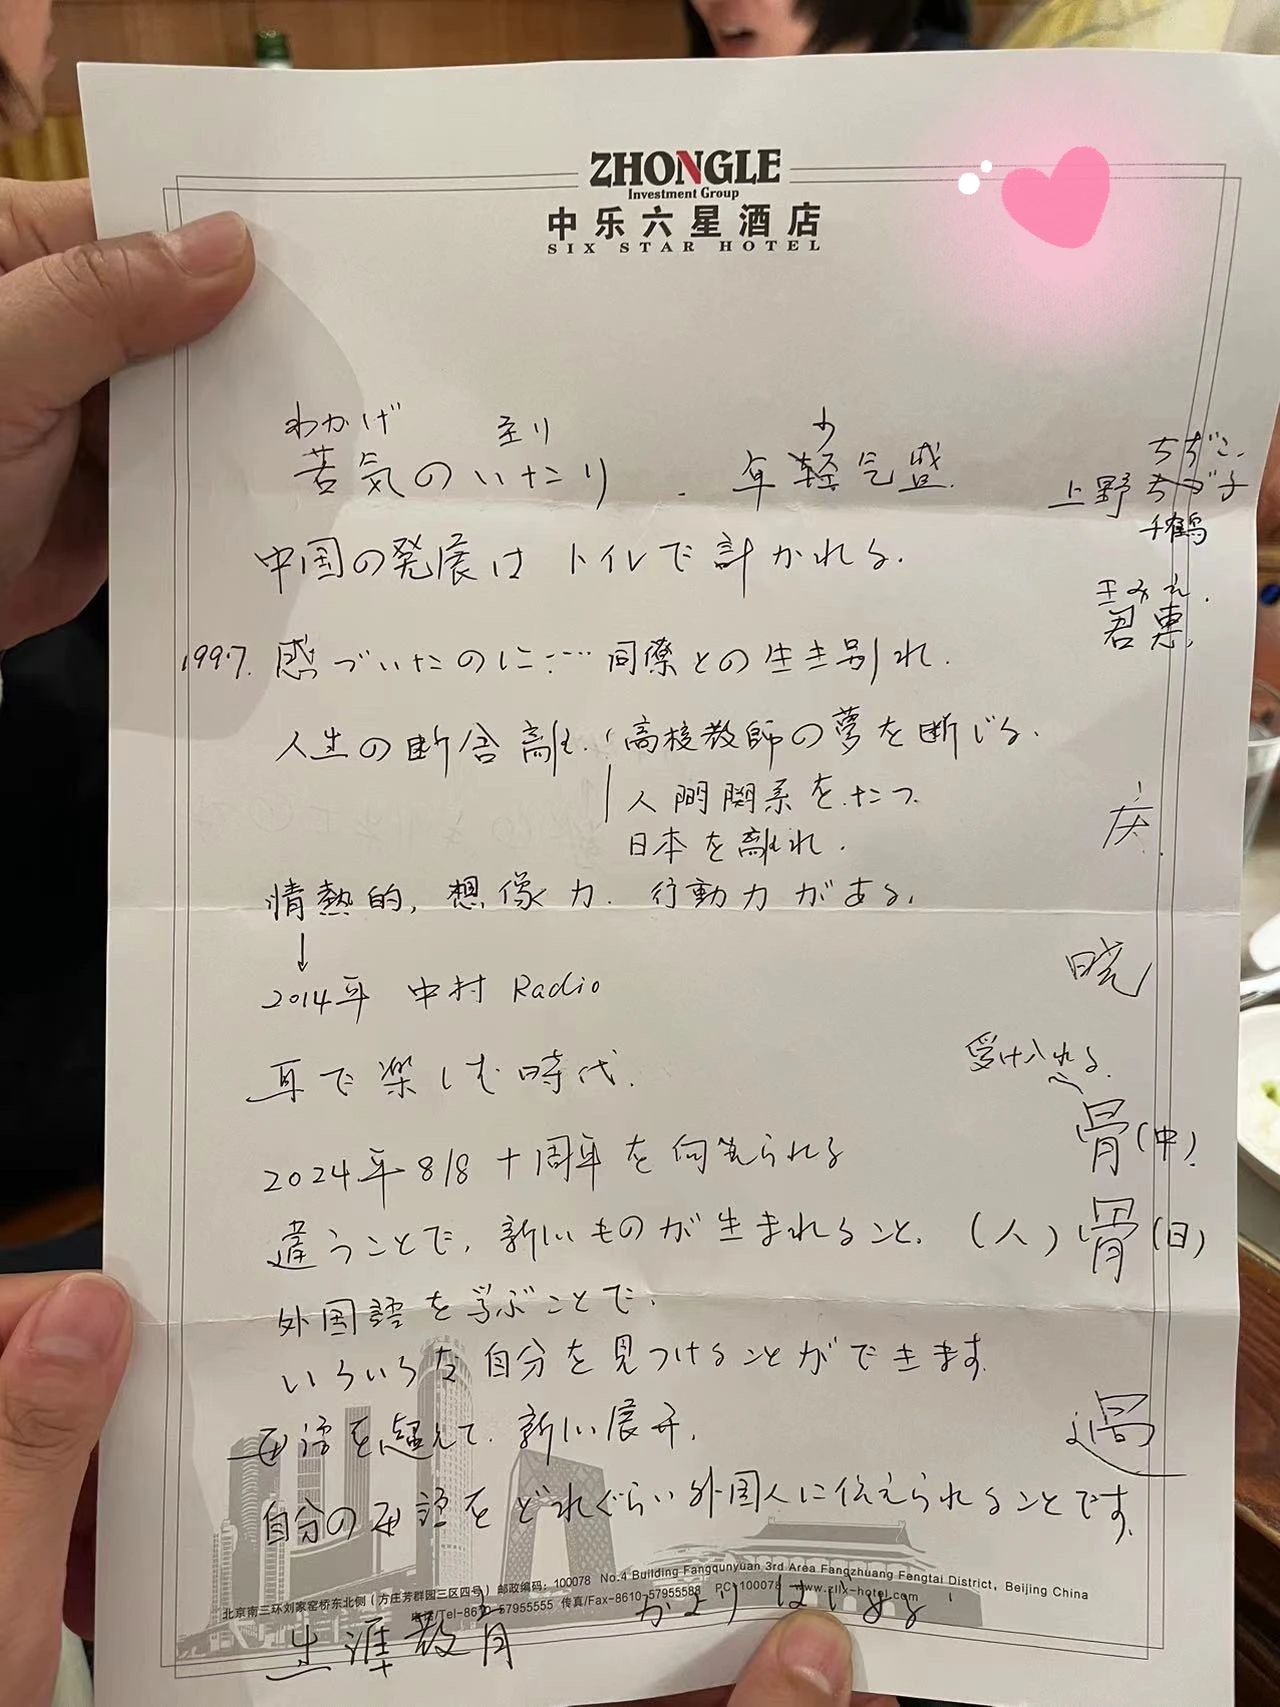 ZHONGLE
Investment Group
中乐六星酒店
SIX STAR HOTEL
わかげ 至り
若気のいたり . 年轻气盛.
少
ちずこ.
上野ちづ子
千鶴
中国の発展は トイレで計かれる.
きみえ.
君恵,
1997. 感づいたのに…… 同僚との生き別れ.
人生の断舎離. 高校教師の夢を断じる.
人間関系を.たつ.
日本を離れ.
庆
情熱的, 想像力. 行動力がある.
↓
2014年 中村 Radio
晓
耳で楽しむ時代.
受け入れる.
骨(中)
2024年8/8 十周年を向えられる
違うことで, 新しいものが生まれること. (人) 骨(日)
外国語を学ぶことで.
いろいろな自分を見つけることができます.
母語を超えて. 新しい展开.
過
自分の母語をどれぐらい外国人に伝えられることです.
No.4 Building Fangqunyuan 3rd Area Fangzhuang Fengtai District, Beijing China
北京南三环刘家窑桥东北侧（方庄芳群园三区四号）邮政编码：100078
电话/Tel-8610-57955555 传真/Fax-8610-57955588 PC:100078
生涯教育